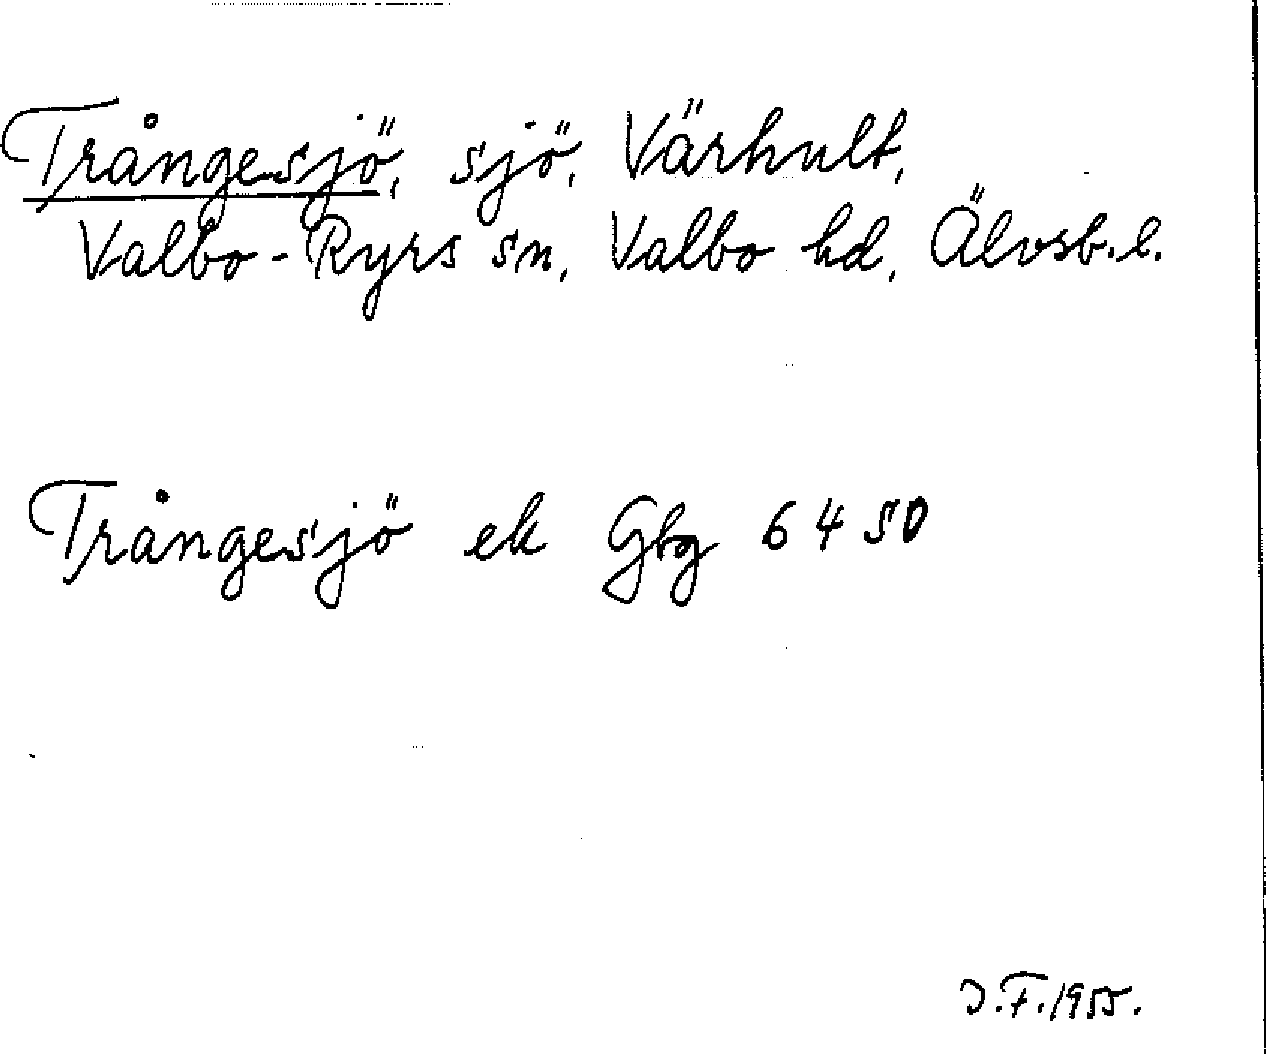 Trångesjö, sjö, Värhult,
Valbo-Ryrs sn, Valbo hd, Älvsb. l.
Trångesjö ek Gbg 6450
J.F. 1955.